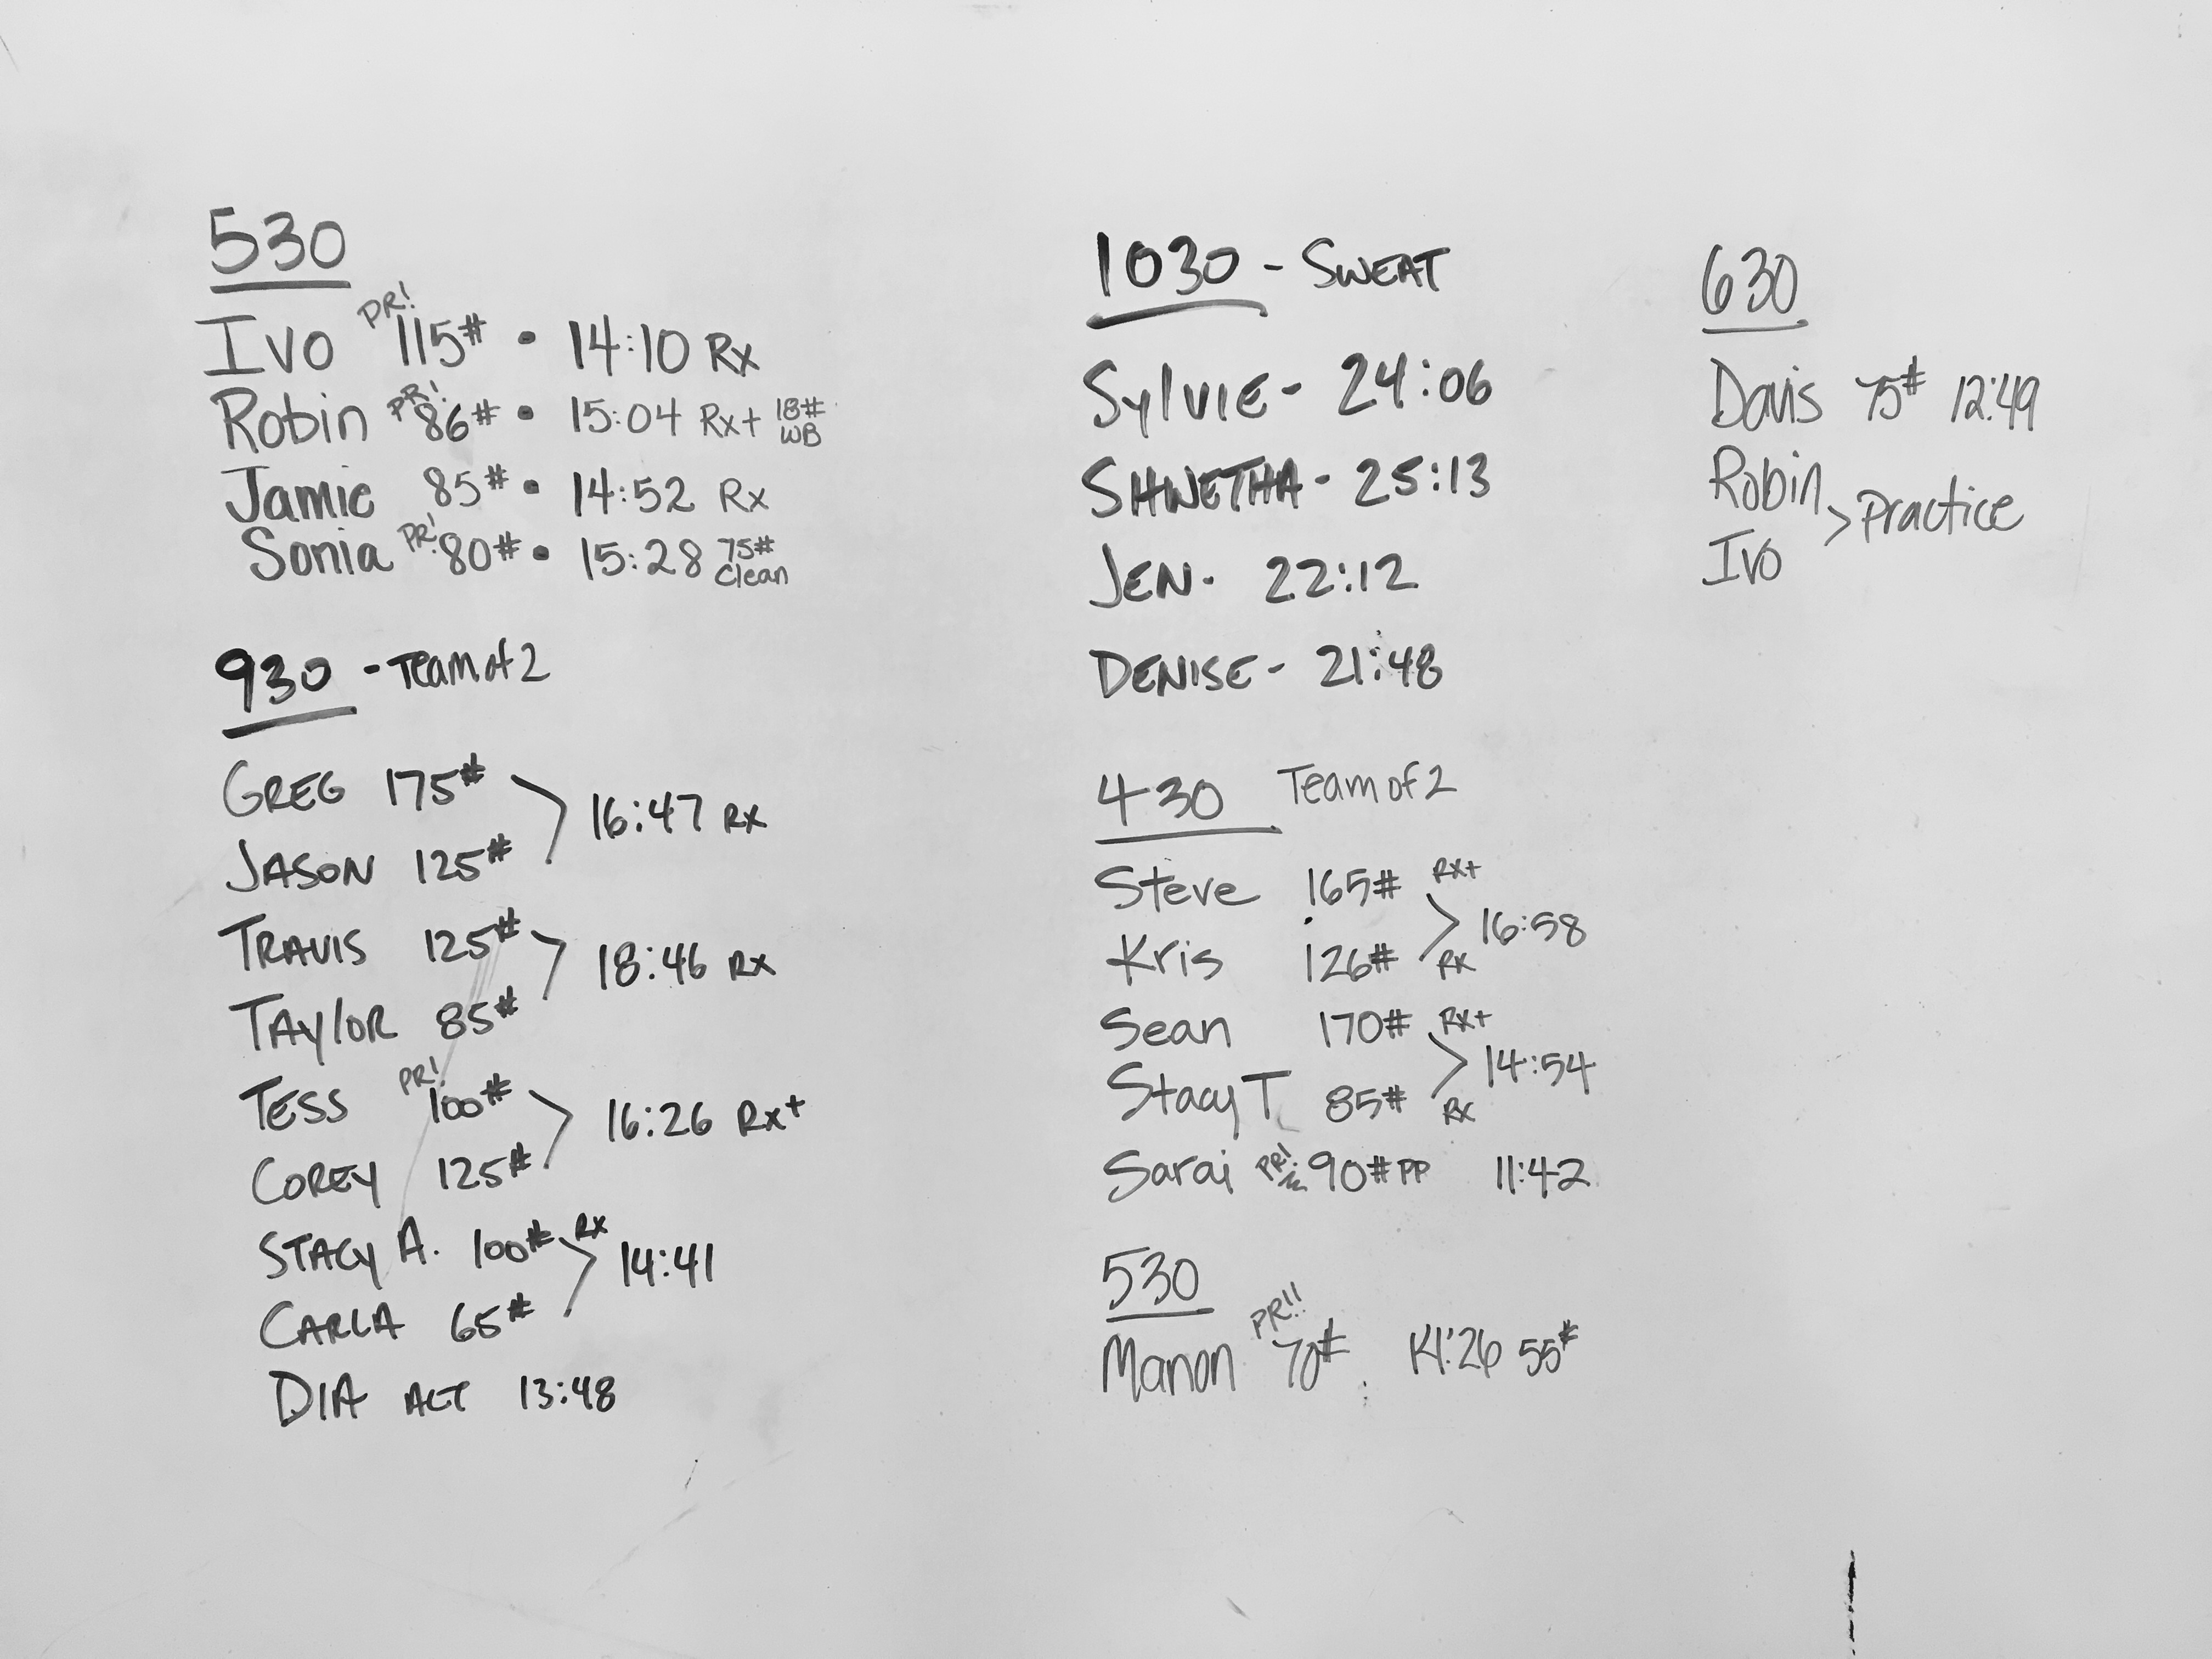 530
Ivo PR! 115# • 14:10 Rx
Robin PR! 86# • 15:04 Rx+ 18# WB
Jamie 85# • 14:52 Rx
Sonia PR! 80# • 15:28 75# Clean
930 - Team of 2
GREG 175#
16:47 RX
JASON 125#
TRAVIS 125#
18:46 RX
TAYLOR 85#
TESS PR! 100#
16:26 RX+
COREY 125#
STACY A. 100# RX
14:41
CARLA 65#
DIA ALT 13:48
1030 - SWEAT
SYLVIE - 24:06
SHWETHA - 25:13
JEN - 22:12
DENISE - 21:48
430 Team of 2
Steve 165# RX+
16:58
Kris 126# RX
Sean 170# RX+
14:54
Stacy T 85# RX
Sarai PR! 90# PP 11:42
530
Manon PR!! 70# 14:26 55#
630
Davis 75# 12:49
Robin
> Practice
Ivo